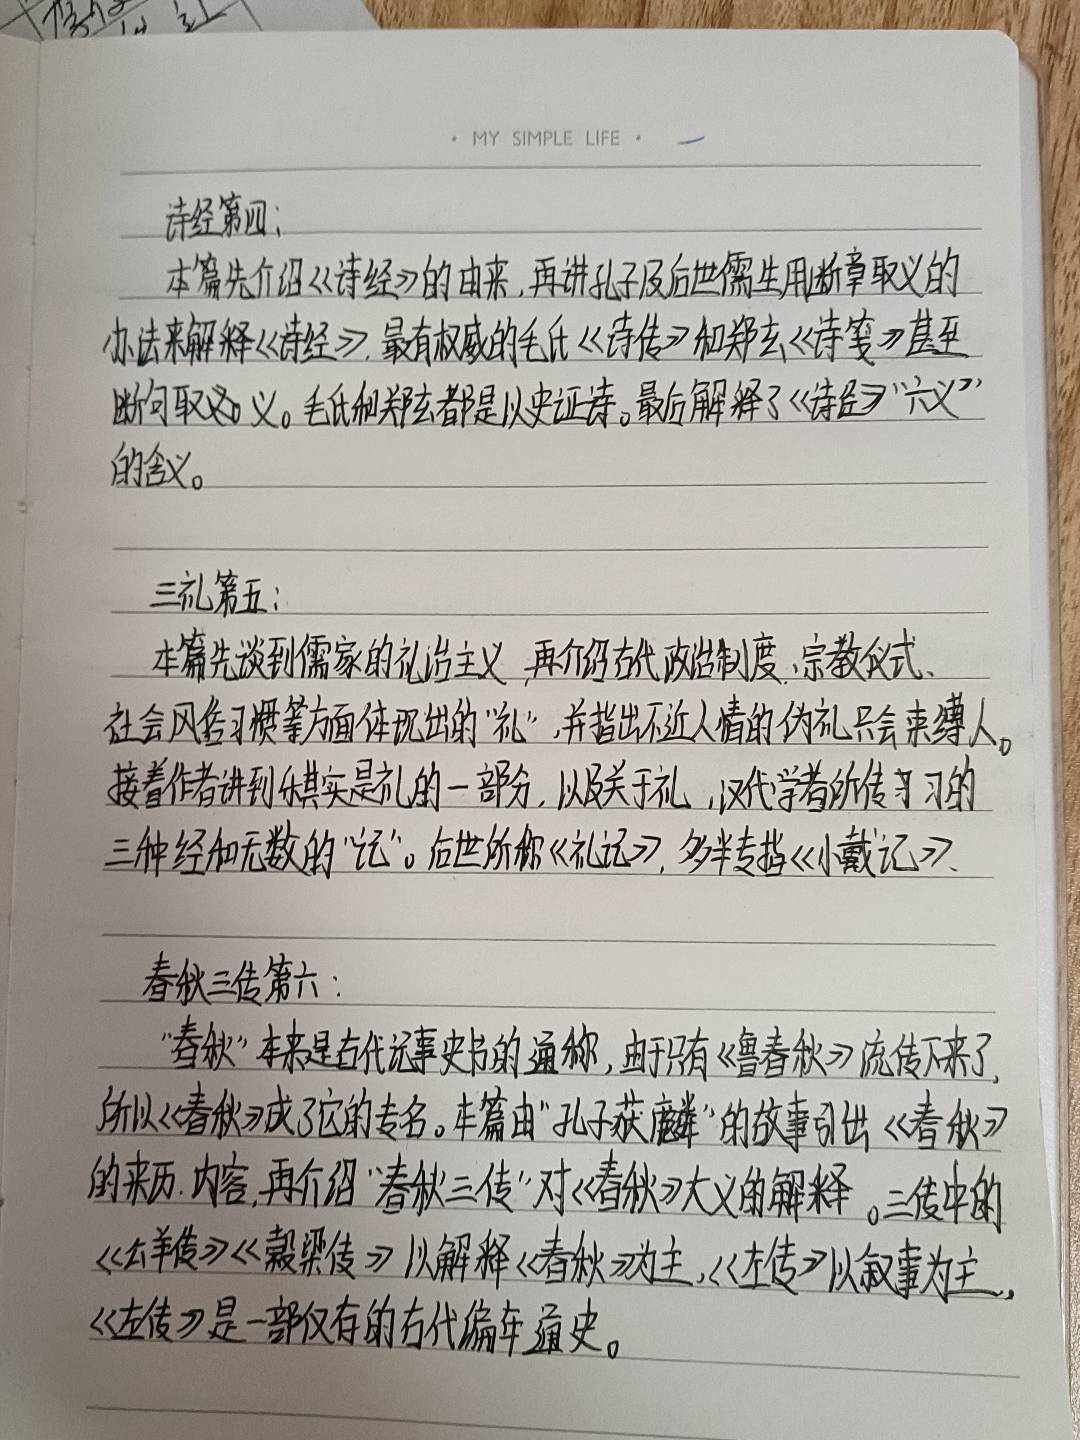 · MY SIMPLE LIFE ·
诗经第四：
本篇先介绍《诗经》的由来，再讲孔子及后世儒生用断章取义的
办法来解释《诗经》，最有权威的毛氏《诗传》和郑玄《诗笺》甚至
断句取义。义。毛氏和郑玄都是以史证诗。最后解释了《诗经》“六义”
的含义。
三礼第五：
本篇先谈到儒家的礼治主义，再介绍古代政治制度、宗教仪式、
社会风俗习惯等方面体现出的“礼”，并指出不近人情的伪礼只会来缚人。
接着作者讲到乐其实是礼的一部分，以及关于礼，汉代学者所传习习的
三种经和无数的“记”。后世所称《礼记》，多半专指《小戴记》、
春秋三传第六：
“春秋”本来是古代记事史书的通称，由于只有《鲁春秋》流传下来了，
所以《春秋》成了它的专名。本篇由“孔子获麟”的故事引出《春秋》
的来历、内容，再介绍“春秋三传”对《春秋》大义的解释。三传中的
《公羊传》《穀梁传》以解释《春秋》为主，《左传》以叙事为主，
《左传》是一部仅存的古代编年通史。